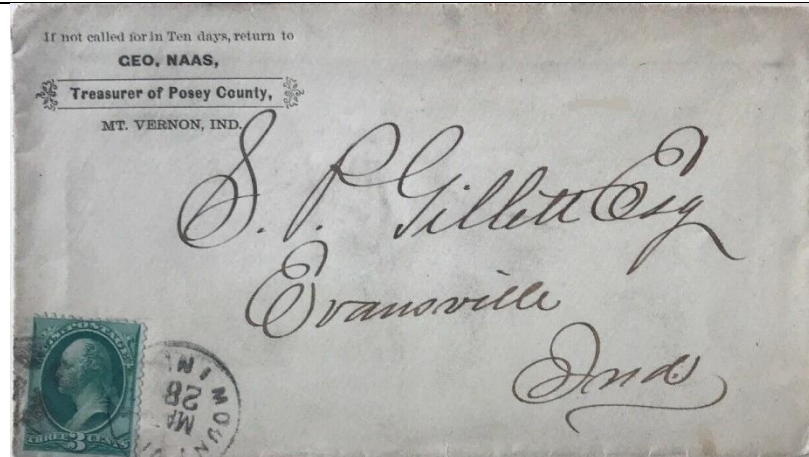 If not called for in Ten days, return to
GEO. NAAS,
Treasurer of Posey County,
MT. VERNON, IND.
S. P. Gillett Esq
Evansville
Ind.
U.S. POSTAGE
THREE 3 CENTS
MOUNT
MA
28
IN